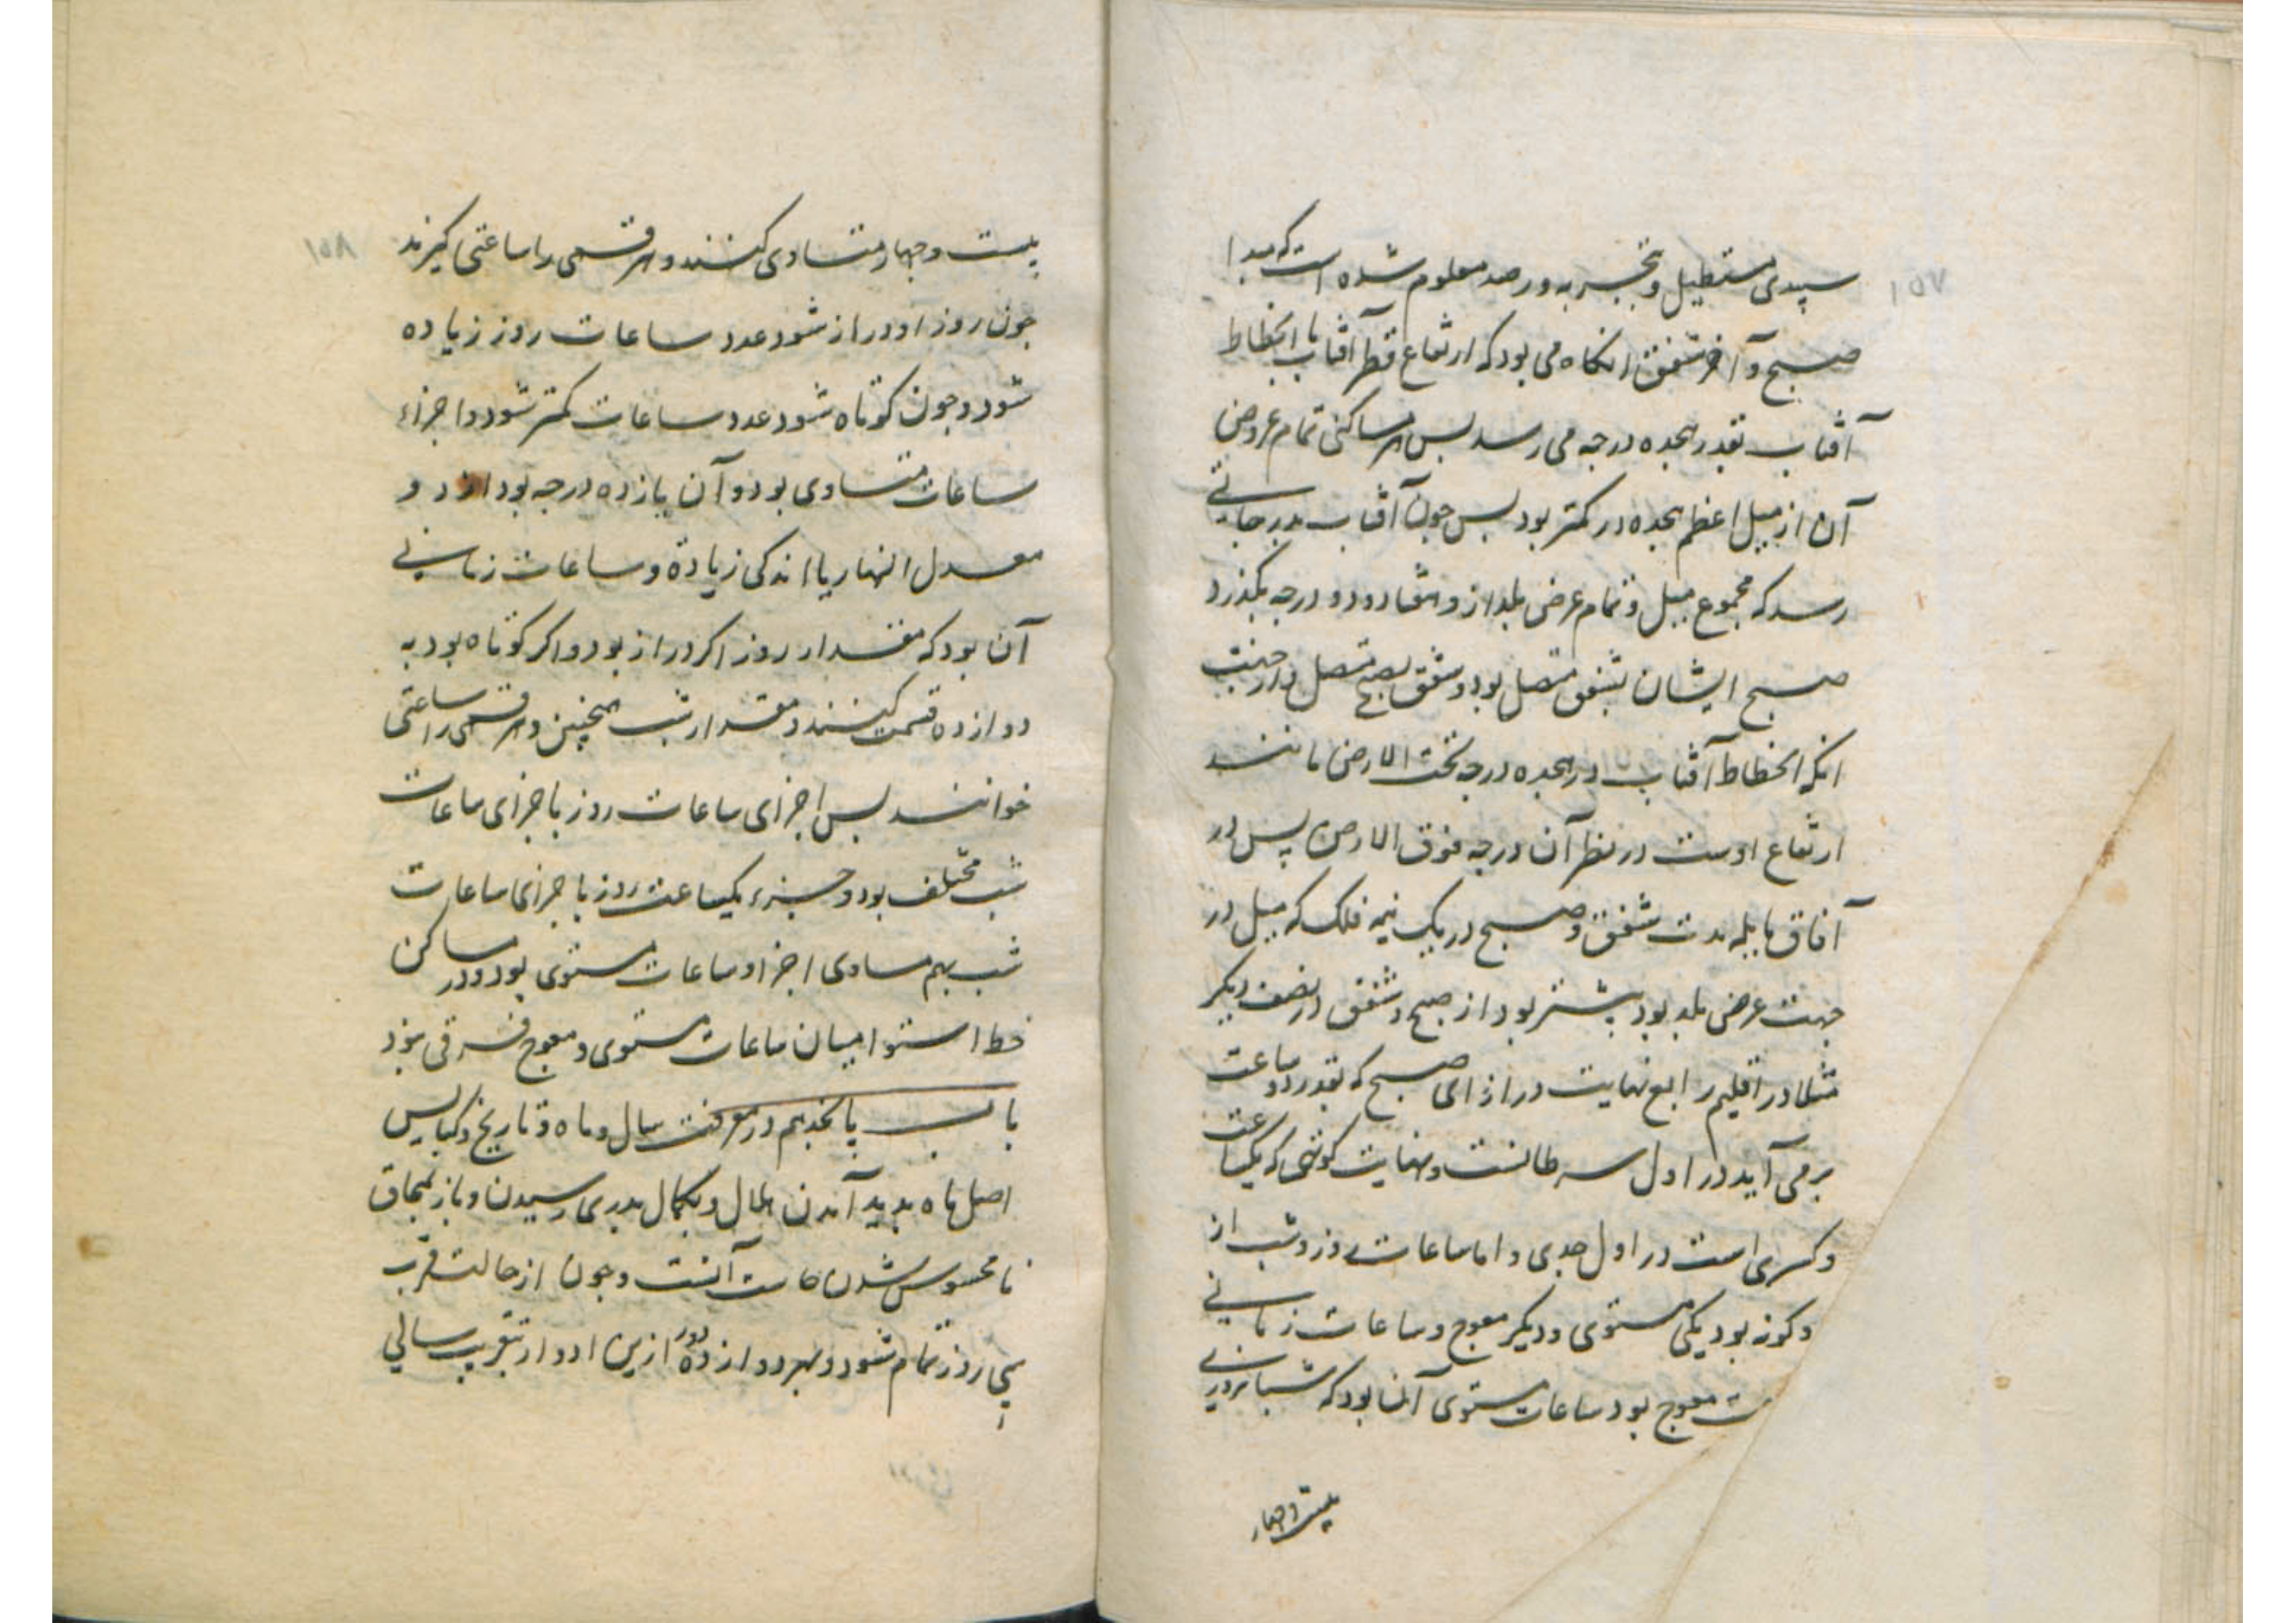 سپیدی مستطیل و بتجربه و رصد معلوم شده است که مبدا
صبح و آخر شفق انکاه می بود که ارتفاع قطر آفتاب یا انحطاط
آفتاب بقدر هجده درجه می رسد بس هر مساکنی تمام عروض
آن از میل اعظم هجده در کمتر بود بس جون آفتاب بدرجاتی
رسد که مجموع میل و تمام عرض بلد از و هفتاد و دو درجه بکذرد
صبح ایشان بشفق متصل بود و شفق بصبح متصل و از جهت
انکه انحطاط آفتاب در هجده درجه تحت الارض مانند
ارتفاع اوست در نظر آن درجه فوق الارض پس در
آفاق مایله مدت شفق و صبح در یک نیمه فلک که میل در
جهت عرض بلد بود بیشتر بود از صبح و شفق در نصف دیکر
مثلا در اقلیم رابع نهایت درازای صبح که بقدر دو ساعت
برمی آید در اول سرطانست و نهایت کوتهی که یکساعت
و کسری است در اول جدی و اما ساعات روز و شب از
دو کونه بود یکی مستوی و دیکر معوج و ساعات زمانی
معوج بود ساعات مستوی آنها بود که شبانروزی
بیست و چهار
۱۵۷
بیست و جهار متساوی کنند و هر قسمی را ساعتی کیرند
جون روز او دراز شود عدد ساعات روز زیاده
شود و جون کوتاه شود عدد ساعات کمتر شود و اجزاء
ساعات متساوی بود و آن پازده درجه بود از د و
معدل النهار یا اندکی زیاده و ساعات زمانی
آن بود که مقدار روز اکر دراز بود و اکر کوتاه بود به
دوازده قسمت کنند و مقدار شب همچنین و هر قسمی را ساعتی
خوانند بس اجزای ساعات روز با جزای ساعات
شب مختلف بود و جزء یکساعت روز با جزای ساعات
شب بهم مساوی اجزا و ساعات مستوی بود و در مساکن
خط استوا میان ساعات مستوی و معوج فرقی نبود
باب پانجدهم در معرفت سال و ماه و تاریخ و کبایس
اصل ماه بدید آمدن هلال و بکمال بدری رسیدن و باز بمحاق
نامحسوس شدن آنست و جون از حالت قرب
سی روز تمام شود و بهر دوازده دور ازین ادوار بتقریب سالی
۱۵۸